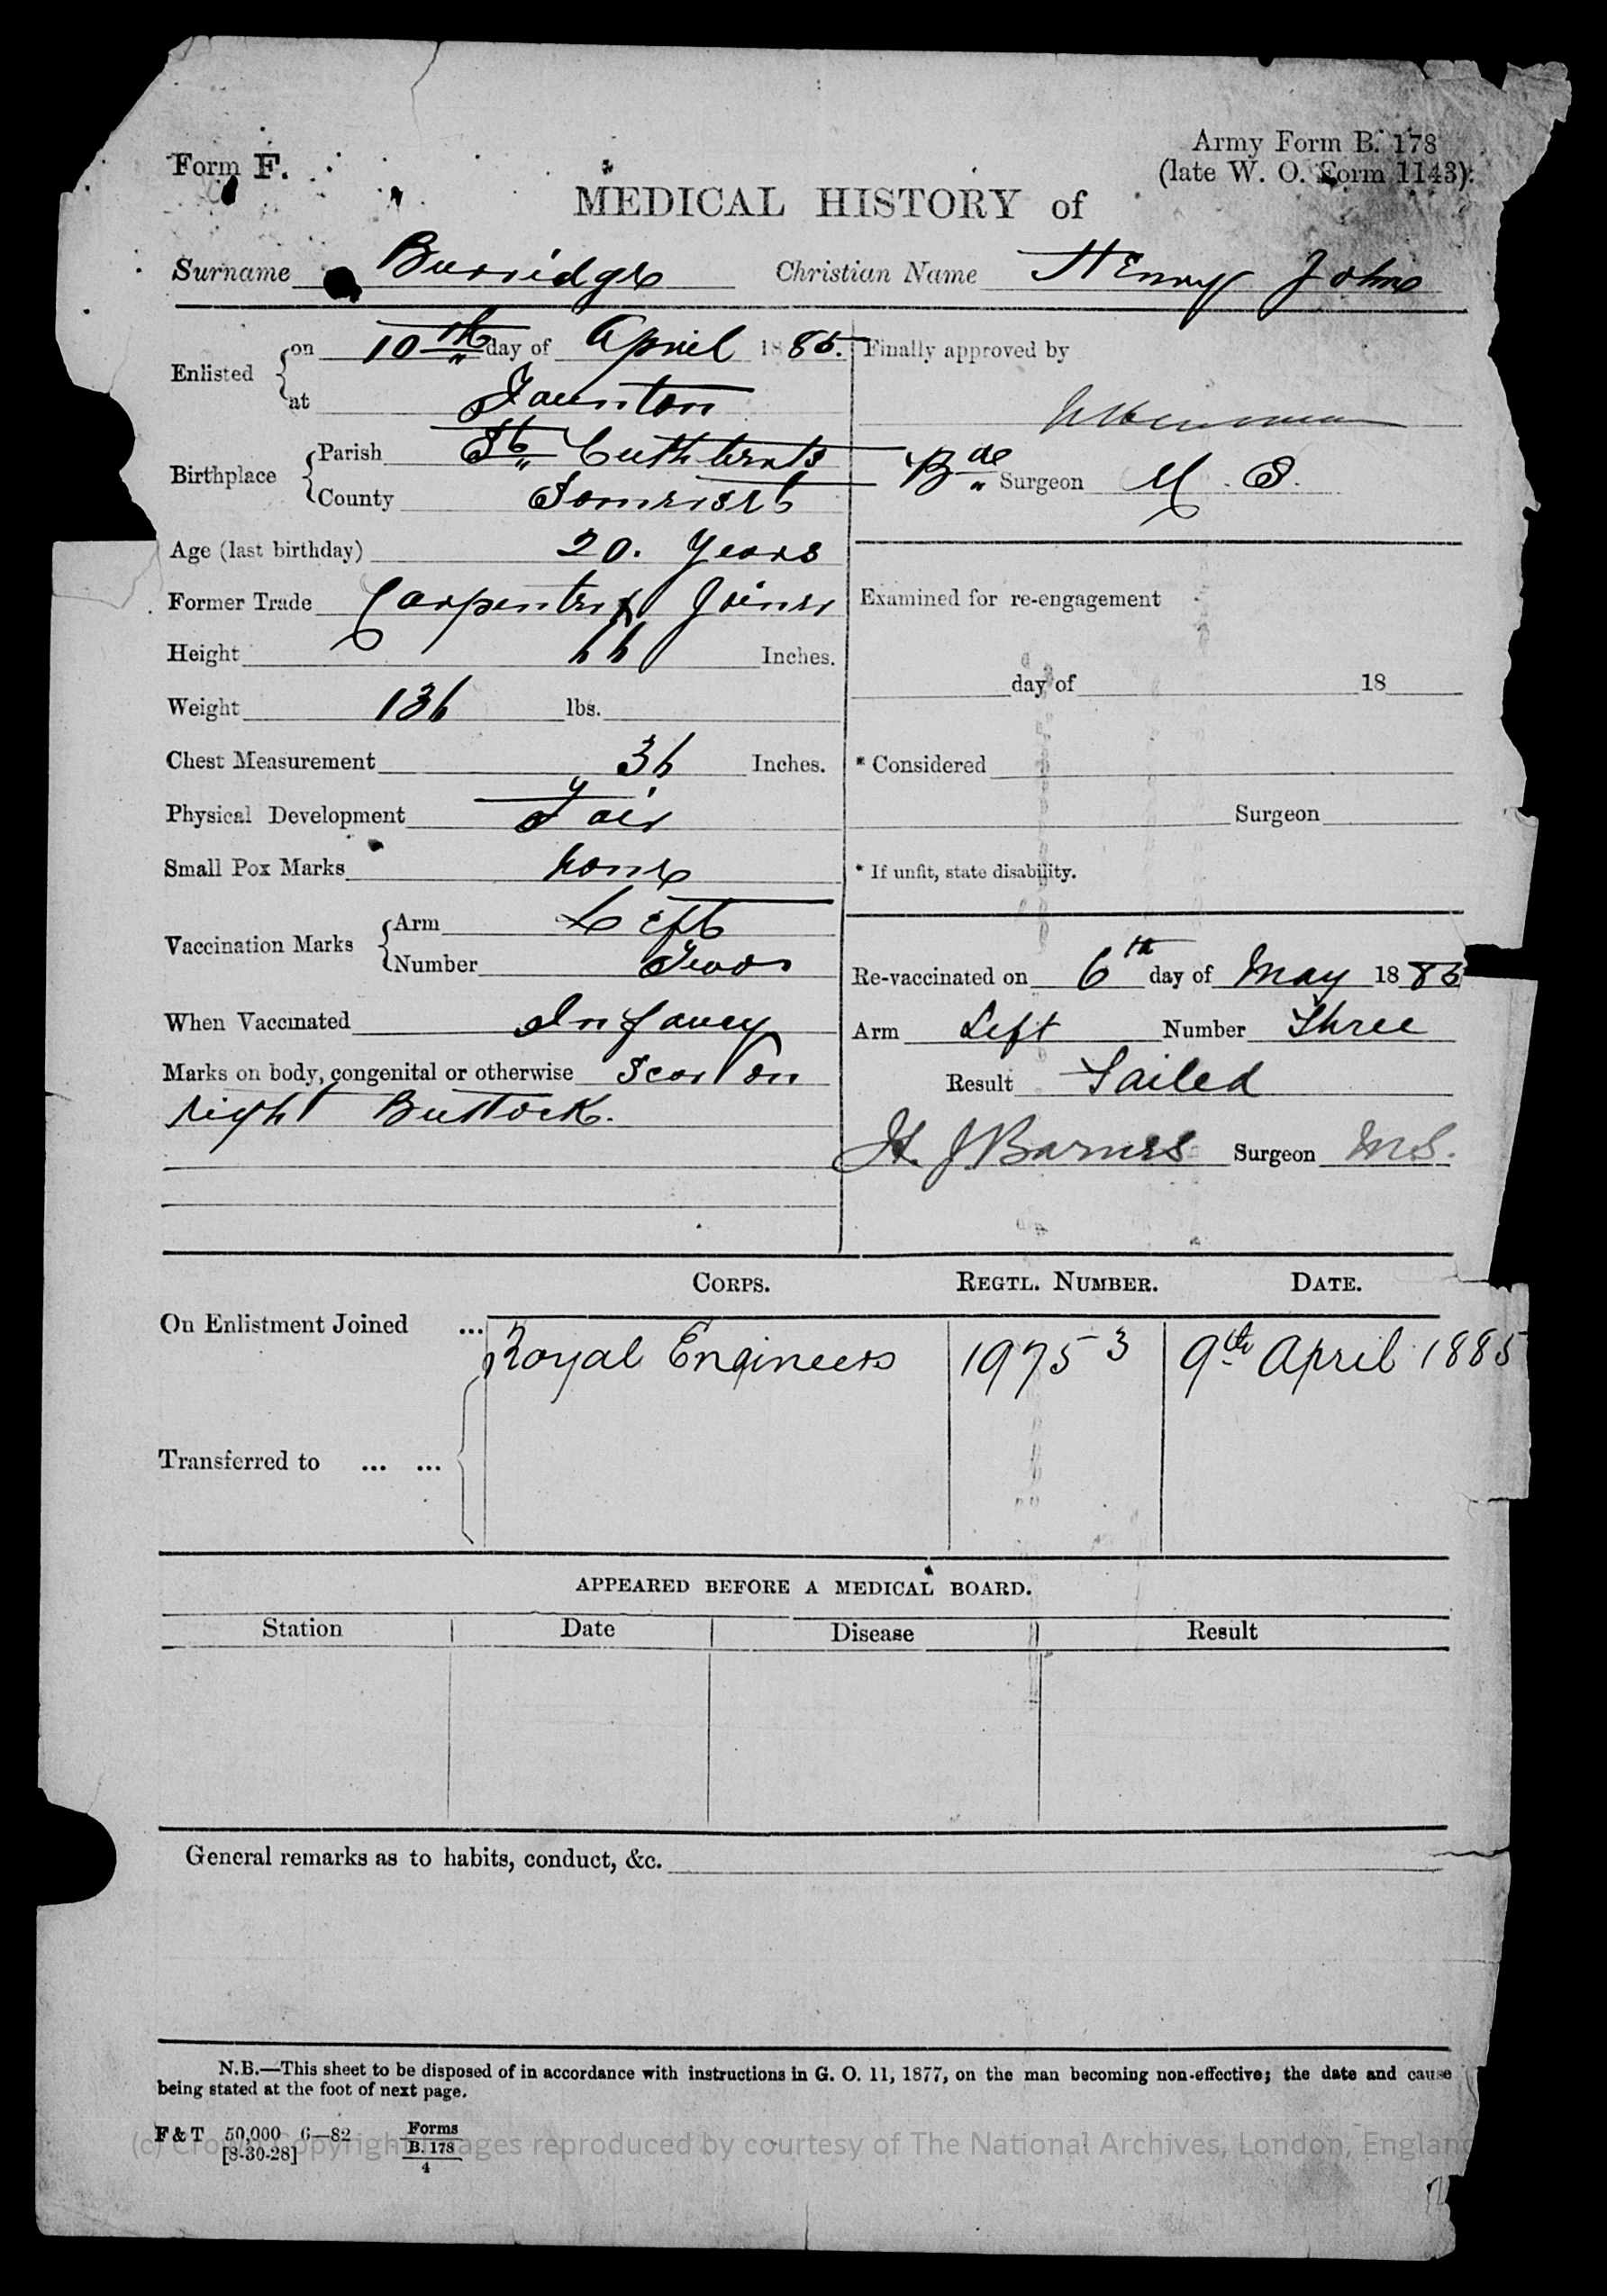 Form F.
Army Form B. 178
(late W. O. Form 1143).
MEDICAL HISTORY of
Surname Burridge Christian Name Henry John
Enlisted on 10th day of April 1885. Finally approved by
at Taunton
Birthplace Parish St Cuthberts
Bde Surgeon M. S.
County Somerset
Age (last birthday) 20. Years
Former Trade Carpenter & Joiner Examined for re-engagement
Height 66 Inches.
day of 18
Weight 136 lbs.
Chest Measurement 36 Inches. * Considered
Physical Development Fair Surgeon
Small Pox Marks None * If unfit, state disability.
Vaccination Marks Arm Left
Number Two
Re-vaccinated on 6th day of May 1885
When Vaccinated Infancy Arm Left Number Three
Marks on body, congenital or otherwise Scar on Result Failed
right Buttock.
H. J Barnes Surgeon M.S.
CORPS. REGTL. NUMBER. DATE.
On Enlistment Joined ... Royal Engineers 19753 9th April 1885
Transferred to ... ...
APPEARED BEFORE A MEDICAL BOARD.
Station Date Disease Result
General remarks as to habits, conduct, &c.
N.B.—This sheet to be disposed of in accordance with instructions in G. O. 11, 1877, on the man becoming non-effective; the date and cause
being stated at the foot of next page.
F & T 50,000 6—82 Forms
[8-30-28] B. 178
4
(c) Crown Copyright Images reproduced by courtesy of The National Archives, London, England